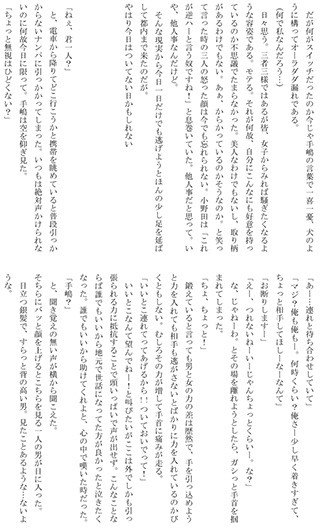 だが何がスイッチだったのか今じゃ手嶋の言葉で一喜一憂、犬のよ
うに構ってオーラダダ漏れである。
(何で私なんだろう…)
日々思う。三者三様ではあるが皆、女子からみれば騒ぎたくなるよ
うな容姿である。モテる。それが何故、自分にこんなにも好意を持っ
ているのか不思議でたまらなかった。美人なわけでもない、取り柄
があるわけでもない。ああ、からかっているのかそうなのか。と笑っ
て言った時の三人の怒った顔は今でも忘れられない。小野田は「これ
が逆ハーと言う奴ですね！」と息巻いていた。他人事だと思って。い
や、他人事なんだけど。
そんな現実から今日一日だけでも逃げようとほんの少し足を延ば
して都内まで来たのだが。
やはり今日はついてない日かもしれない
「ねえ、君一人？」
と、電車から降りてどこ行こうかと携帯を眺めていると普段引っか
からないナンパに引っかかってしまった。いつもは絶対声かけられな
いのに何故今日に限って。手嶋は空を仰ぎ見た。
「ちょっと無視はひどくない？」
「あー…連れと待ち合わせしていて」
「マジ？俺も俺もー。何時くらい？俺さー少し早く着きすぎて、
ちょっと相手してほしーなーなんて」
「お断りします」
「えー、つれないねーいーじゃんちょっとくらいー。な？」
な、じゃねーわ。とその場を離れようとしたら、ガシっと手首を掴
まれてしまった。
「ちょ、ちょっと！」
鍛えていると言っても男と女の力の差は歴然で、手を引っ込めよう
と力を入れても相手も逃がさないとばかりに力を入れているのかび
くともしない。むしろその力が増して手首に痛みが走る。
「いいとこ連れてってあげるから…ついておいでって！」
いいとこなんて望んでねー！と叫びたいがここは外でしかも引っ
張られる力に抵抗することで頭いっぱいで声が出せず。こんなことな
らば誰でもいいから地元で世話になってた方が良かったと泣きたく
なった。誰でもいいから助けてくれよと、心の中で嘆いた時だった。
「手嶋？」
と、聞き覚えの無い声が横から聞こえた。
そちらにバッと顔を上げるとこちらを見る一人の男が目に入った。
目立つ銀髪で、すらっと背の高い男。見たことあるような…ないよ
うな。